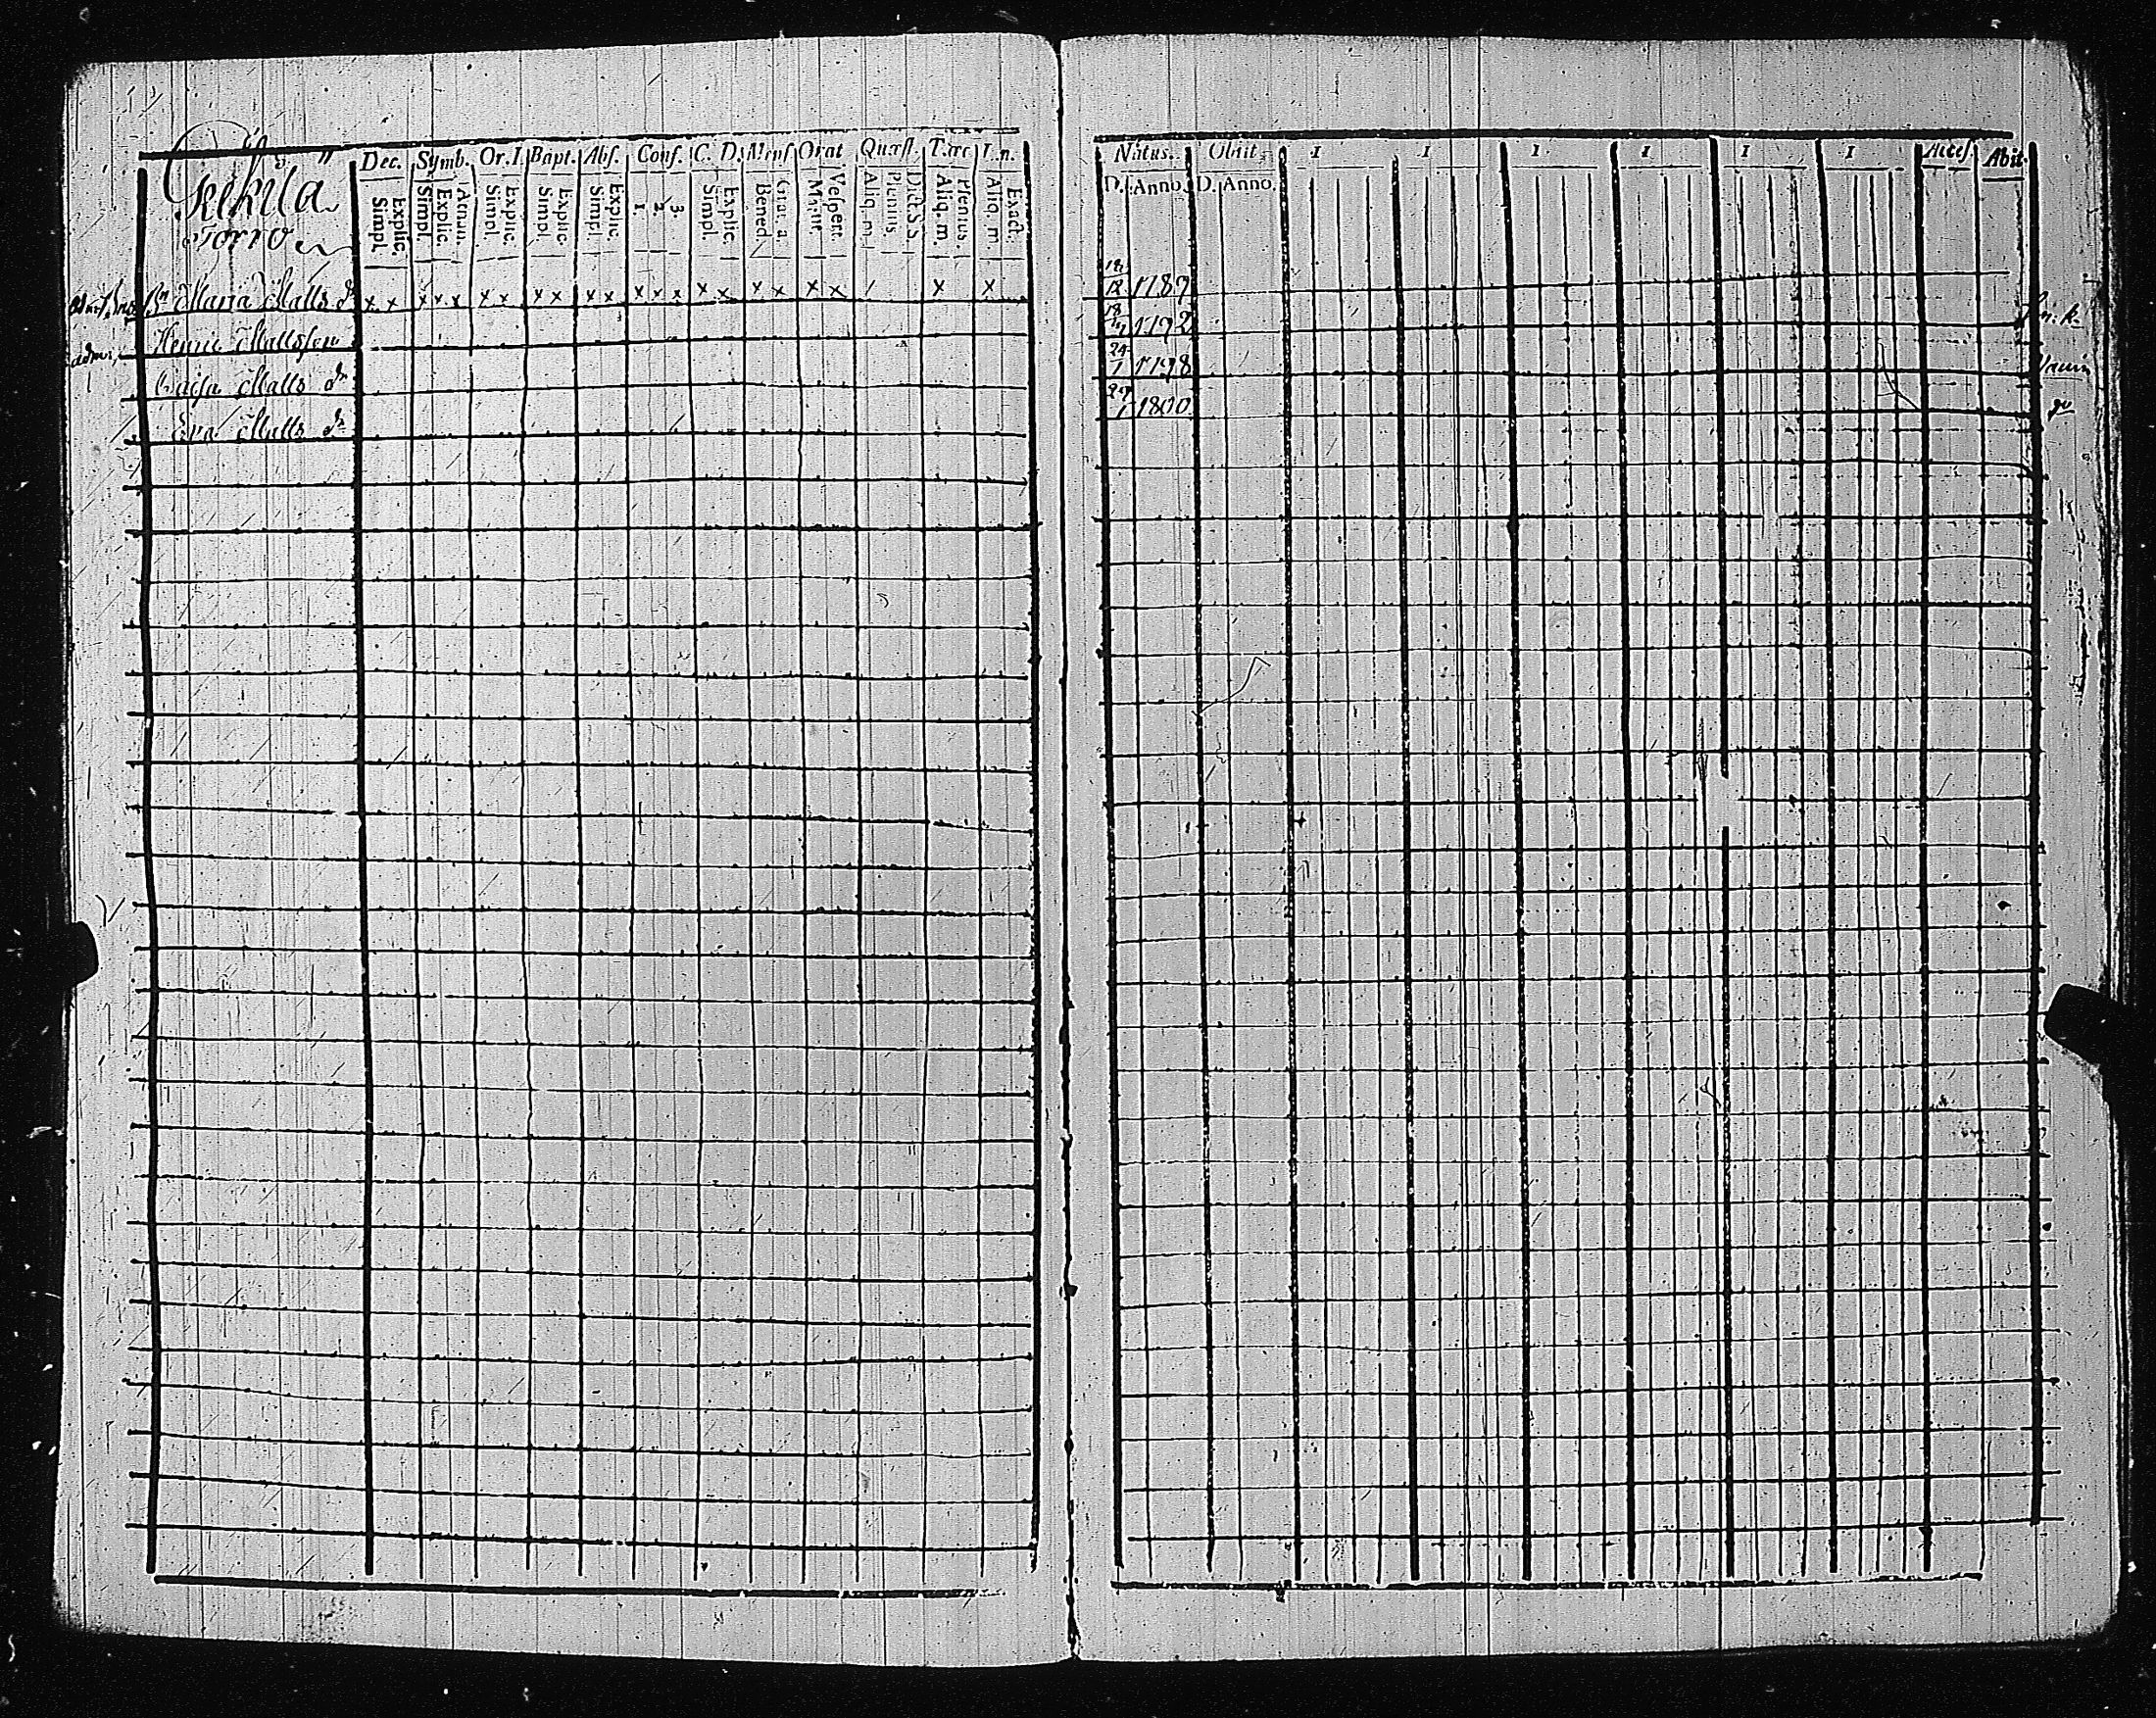 Torro
Dec. Symb. Or. I. Bapt. Abs. Conf. C. D. Mens. Orat Quæst. T. æc I. n.
Simpl. Explic. Simpl. Explic. Athan. Simpl. Explic. Simpl. Explic. Simpl. Explic. 1. 2. 3. Simpl. Explic. Bened. Grat. a. Mat. Vespert. Aliq. m. Plenius Dict. S. S. Aliq. m. Plenius. Aliq. m. Exact.
Maria Matts dr x x x x x x x x x x x x x x x x x x x x x x
Henric Mattsson
Caisa Matts dr
Eva Matts dr
Natus. Obiit. 1 1 1 1 1 1 Access. Abit.
D. Anno. D. Anno.
1789
1792
24 1 1798
27 1 1800